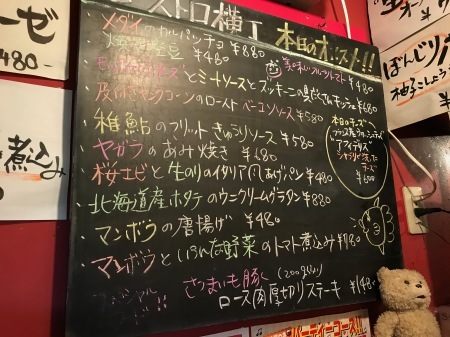 ーゼ
ストロ横丁 本日のオススメ!!
・メダイのカルパッチョ ¥880
¥480
美味しいフルーツトマト ¥480
とミートソースとズッキーニの具だくさんキッシュ ¥680
ヤングコーンのロースト ベーコンソース ¥580
・稚鮎のフリット きゅうりソース ¥580
・ヤガラのあみ焼き ¥680
・桜エビと生のりのイタリア風あげパン ¥480
・北海道産ホタテのウニクリームグラタン ¥880
・マンボウの唐揚げ ¥480
・マンボウといろんな野菜のトマト煮込み ¥780
さつまいも豚 (200g)
ロース肉厚切りステーキ ¥1480
本日のチーズ
¥600
ぼんじり
柚子こしょう
煮込み